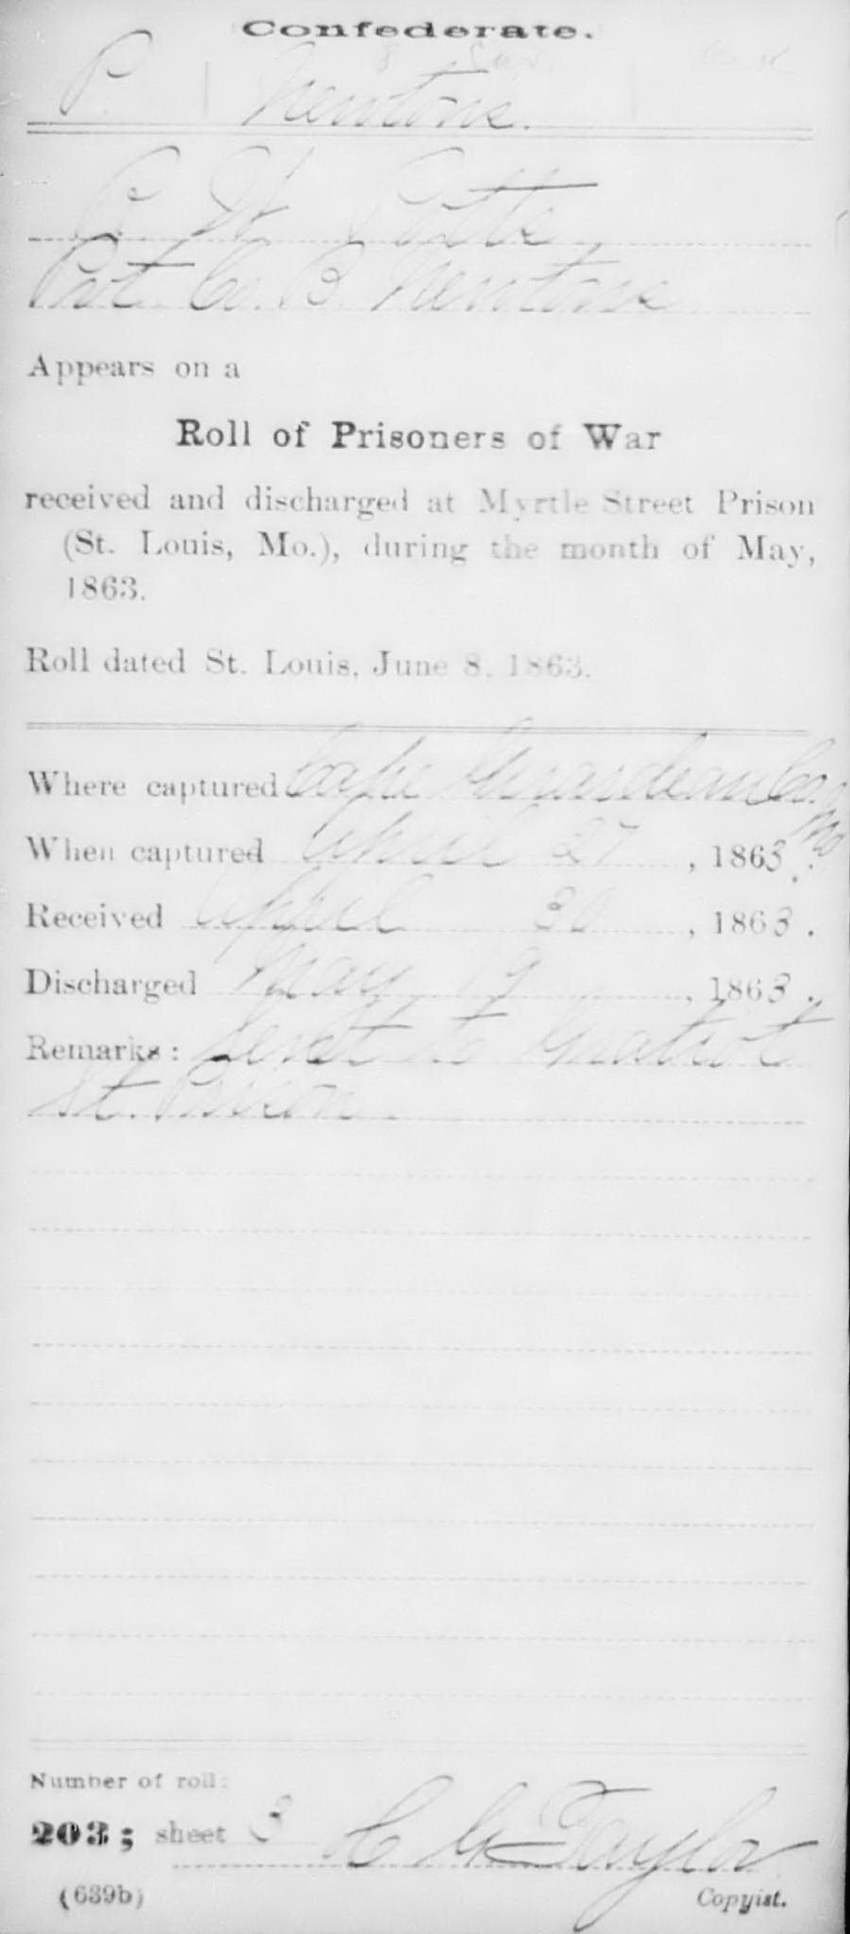 Confederate.
P. Newtons.
Pitts
Pvt. Co. B. Newtons
Appears on a
Roll of Prisoners of War
received and discharged at Myrtle Street Prison
(St. Louis, Mo.), during the month of May,
1863.
Roll dated St. Louis, June 8, 1863.
Where captured Cape Girardeau Co. Mo
When captured April 27, 1863.
Received April 30, 1863.
Discharged May 9, 1863.
Remarks: Sent to Gratiot
St. Prison.
Number of roll:
203; sheet 3 C G Taylor
(639b) Copyist.